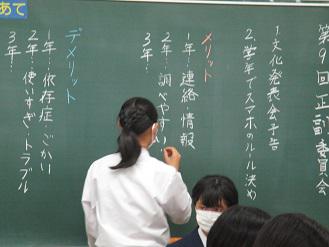 めあて
第9回正副委員会
1.文化発表会予告
2.学年でスマホのルール決め
メリット
1年…連絡 情報
2年…調べやすい
3年…
デメリット
1年…依存症・ごかい
2年…使いすぎ・トラブル
3年…